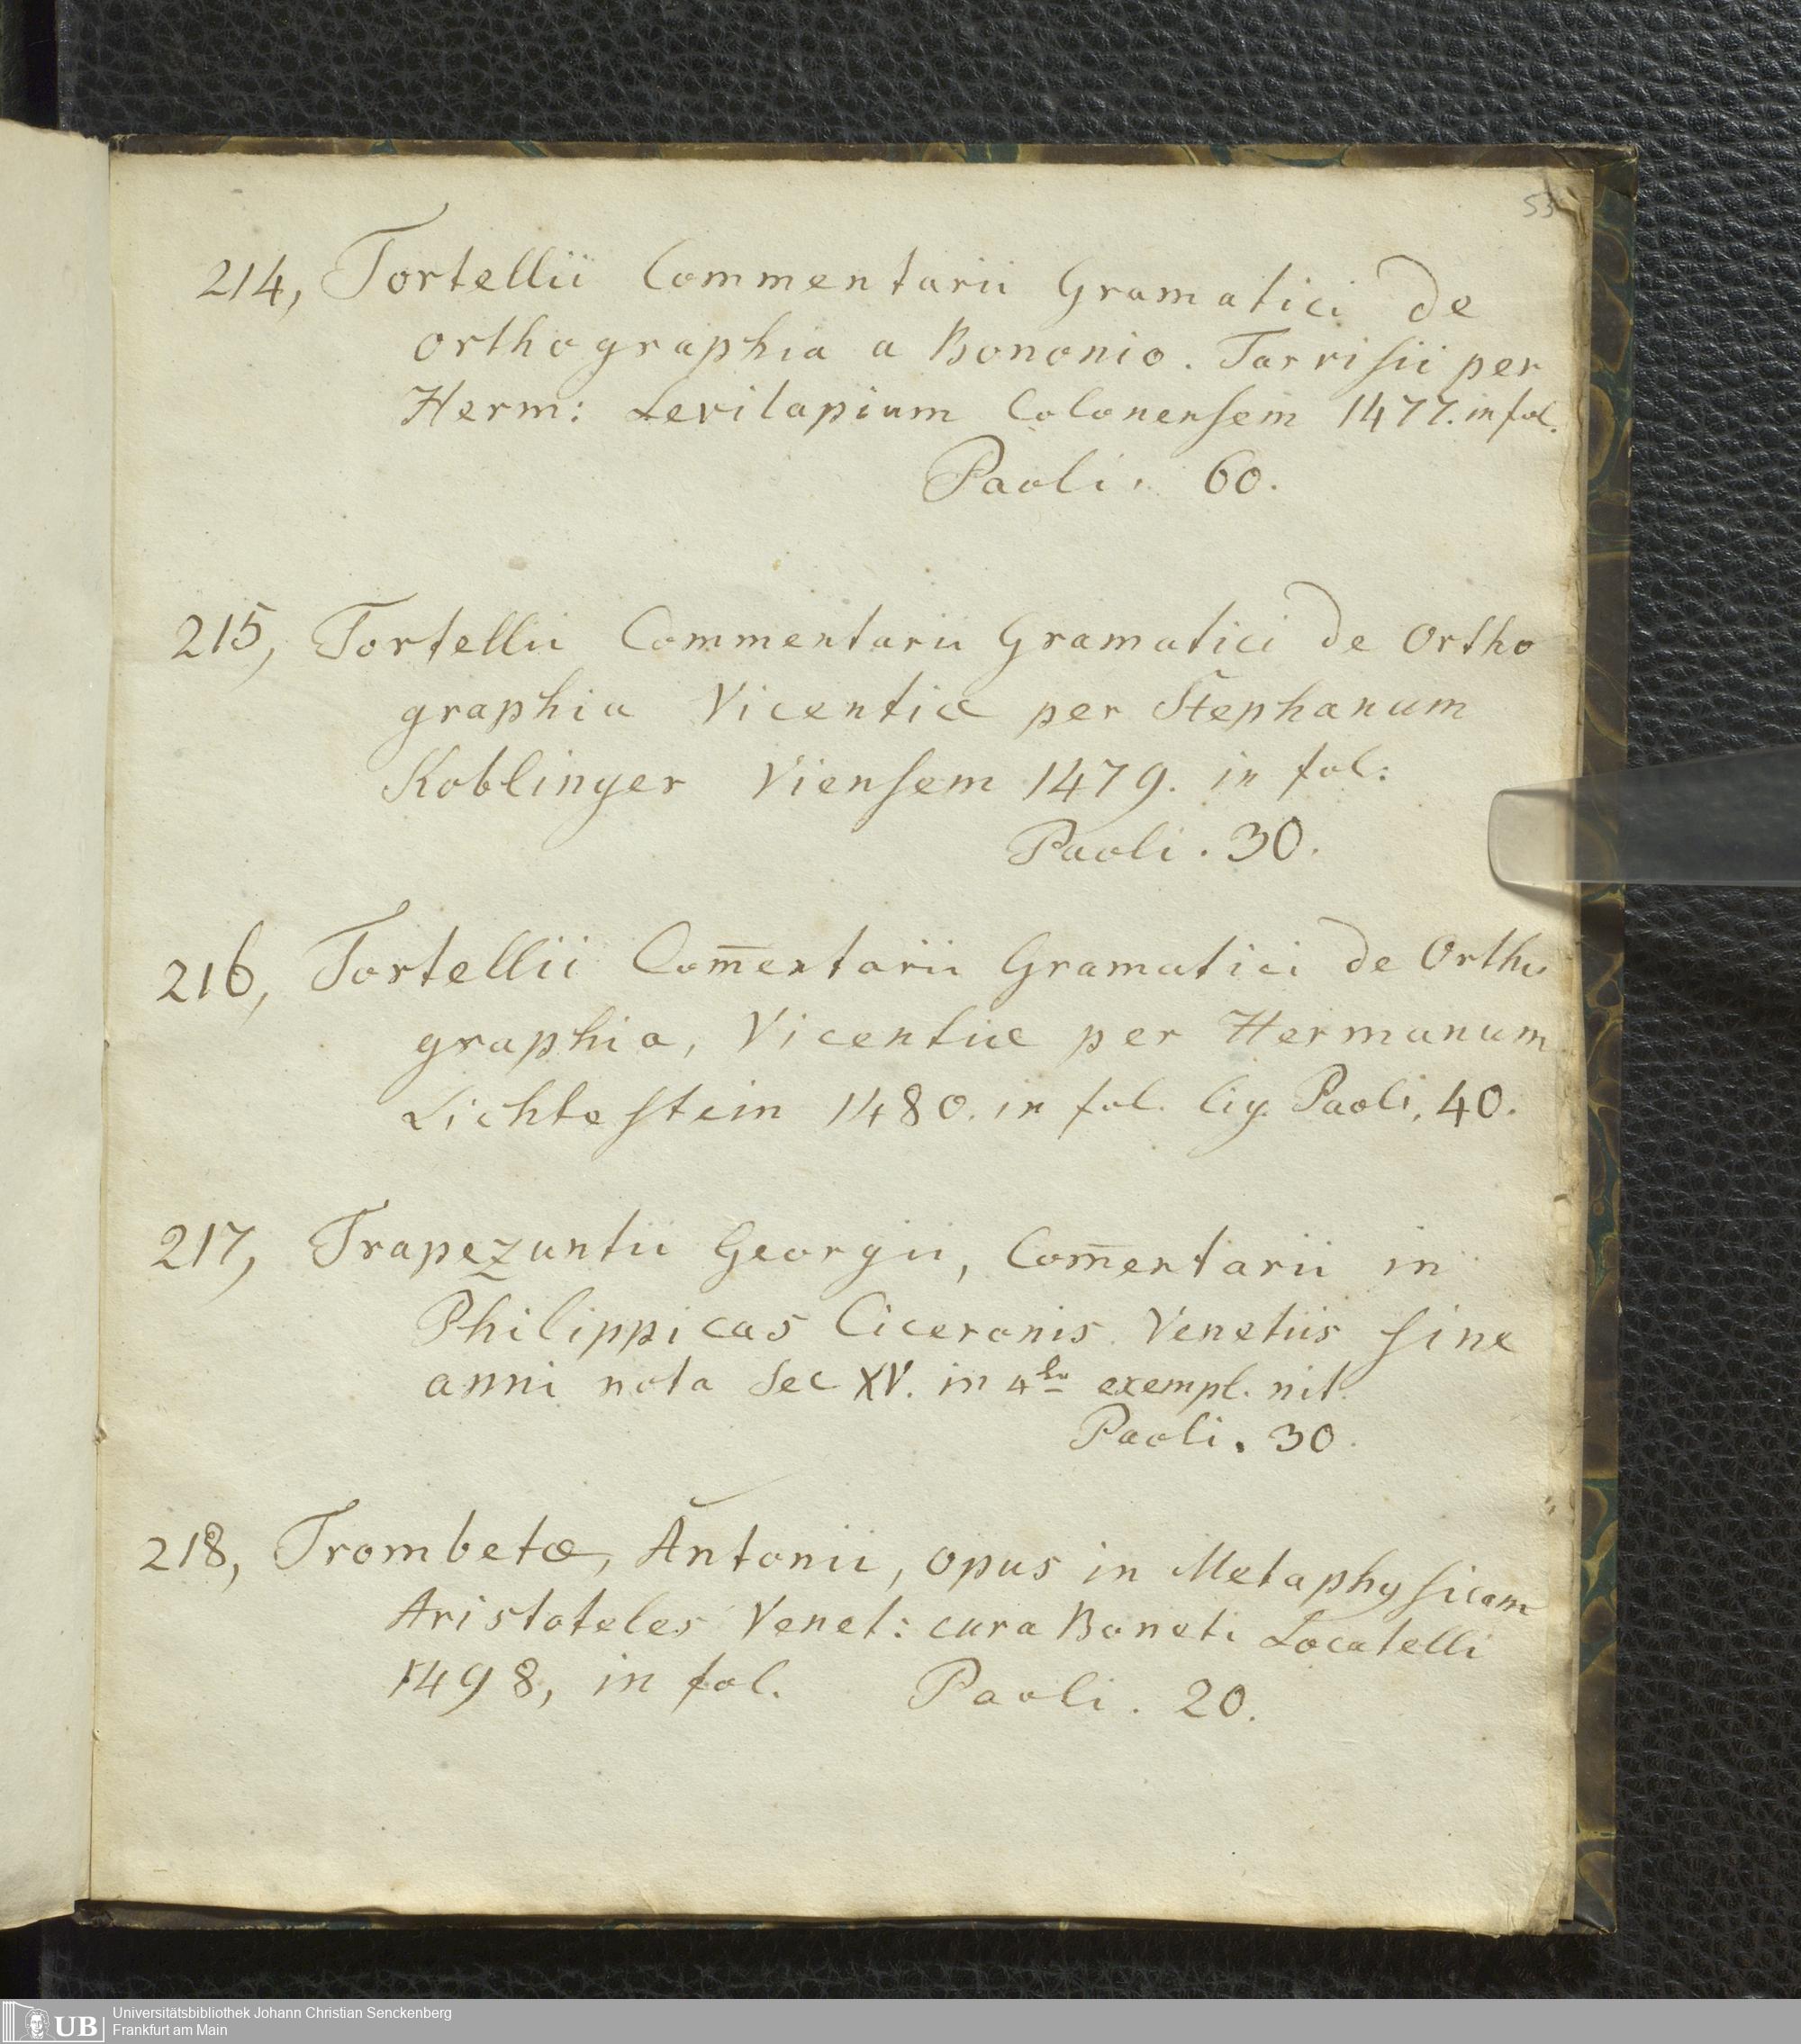 53
214, Tortellii Commentarii Gramatici de
orthographia a Bononio. Tarrisii per
Herm: Levilapium Colonensem 1477. in fol.
Paoli. 60.
215, Tortellii Commentarii Gramatici de Ortho
graphia Vicentiæ per Stephanum
Koblinger Viensem 1479. in fol:
Paoli. 30.
216, Tortellii Com̅entarii Gramatici de Ortho
graphia, Vicentiæ per Hermanum
Lichtestein 1480. in fol. lig. Paoli. 40.
217, Trapezuntii Georgii, Com̅entarii in
Philippicas Ciceronis Venetiis sine
anni nota Sec XV. in 4to exempl. nit.
Paoli. 30.
218, Trombetæ, Antonii, opus in Metaphysicam
Aristoteles Venet: cura Boneti Locatelli
1498, in fol. Paoli. 20.
UB
Universitätsbibliothek Johann Christian Senckenberg
Frankfurt am Main